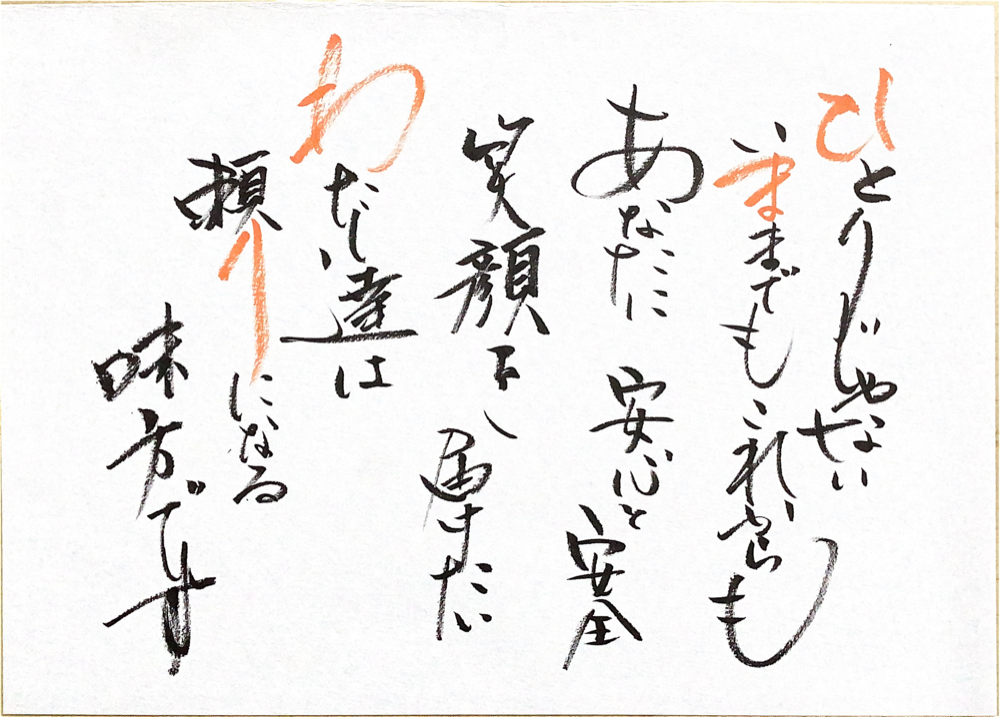 ひとりじゃない
いままでもこれからも
あなたに 安心と安全
笑顔を 届けたい
わたし達は
頼りになる
味方です